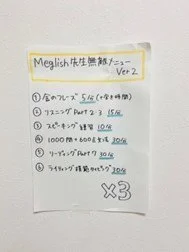 Meglish先生無敵メニュー
Ver 2
① 金のフレーズ 5分 (+全き時間)
② リスニング Part 2・3 15分
③ スピーキング練習 10分
④ 1000問+600点文法 30分
⑤ リーディング Part 7 30分
⑥ ライティング 模範 タイピング 30分
×3